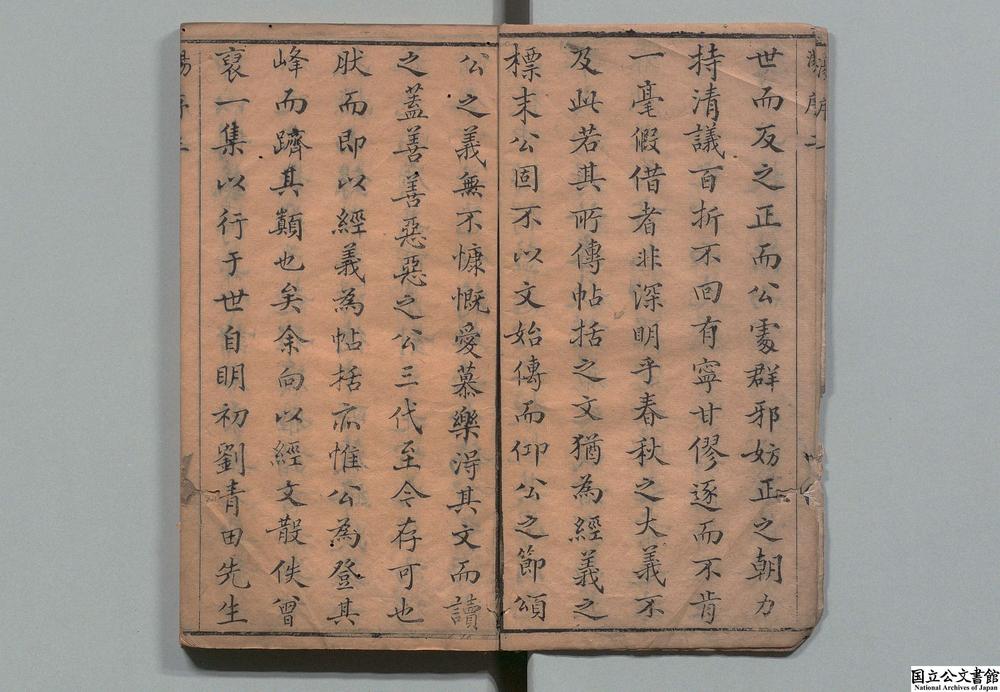 世而反之正而公處群邪妨正之朝力
持清議百折不回有寧甘僇逐而不肯
一毫假借者非深明乎春秋之大義不
及此若其所傳帖括之文猶為經義之
標末公固不以文始傳而仰公之節頌
公之義無不慷慨愛慕樂淂其文而讀
之蓋善善惡惡之公三代至今存可也
肰而即以經義為帖括亦惟公為登其
峰而躋其巔也矣余向以經文散佚曾
裒一集以行于世自明初劉青田先生
国立公文書館
National Archives of Japan